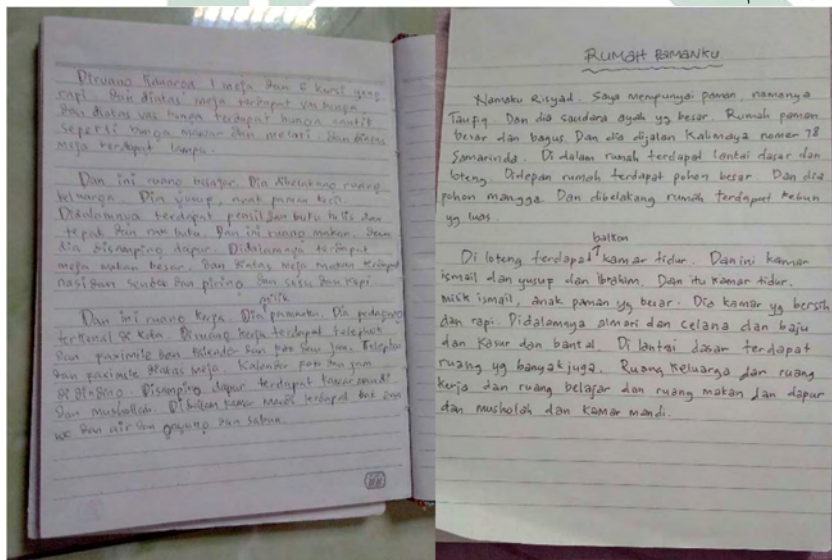 Diruang Keluarga 1 meja dan 6 kursi yang
rapi. Dan diatas meja terdapat vas bunga
dan diatas vas bunga terdapat bunga
seperti bunga mawar dan melati. Dan diatas
meja terdapat lampu.
Dan ini ruang belajar. Dia dibelakang ruang
keluarga. Dia yusup, anak paman kecil.
Didalamnya terdapat pensil dan buku tulis dan
dan rak buku. Dan ini ruang makan. Dan
dia disamping dapur. Didalamnya terdapat
meja makan besar. Dan diatas meja makan terdapat
nasi dan sendok dan piring dan susu dan kopi.
milik
Dan ini ruang kerja. Dia pamanku. Dia pedagang
terkenal di kota. Diruang kerja terdapat telephon
dan faximile dan kalender dan foto dan jam. Telephon
dan faximile diatas meja. Kalender foto dan jam
di dinding. Disamping dapur terdapat kamar mandi
dan mushollah. Didalam kamar mandi terdapat bak dan
wc dan air dan gayung dan sabun.
RUMAH PAMANKU
Namaku Risyad. Saya mempunyai paman, namanya
Taufiq. Dan dia saudara ayah yg besar. Rumah paman
besar dan bagus. Dan dia dijalan Kalimaya nomer 78
Samarinda. Di dalam rumah terdapat lantai dasar dan
loteng. Didepan rumah terdapat pohon besar. Dan dia
pohon mangga. Dan dibelakang rumah terdapat kebun
yg luas.
balkon
Di loteng terdapat kamar tidur. Dan ini kamar
ismail dan yusup dan ibrahim. Dan itu kamar tidur.
milik ismail, anak paman yg besar. Dia kamar yg bersih
dan rapi. Didalamnya almari dan celana dan baju
dan kasur dan bantal. Di lantai dasar terdapat
ruang yg banyak juga. Ruang keluarga dan ruang
kerja dan ruang belajar dan ruang makan dan dapur
dan musholah dan kamar mandi.